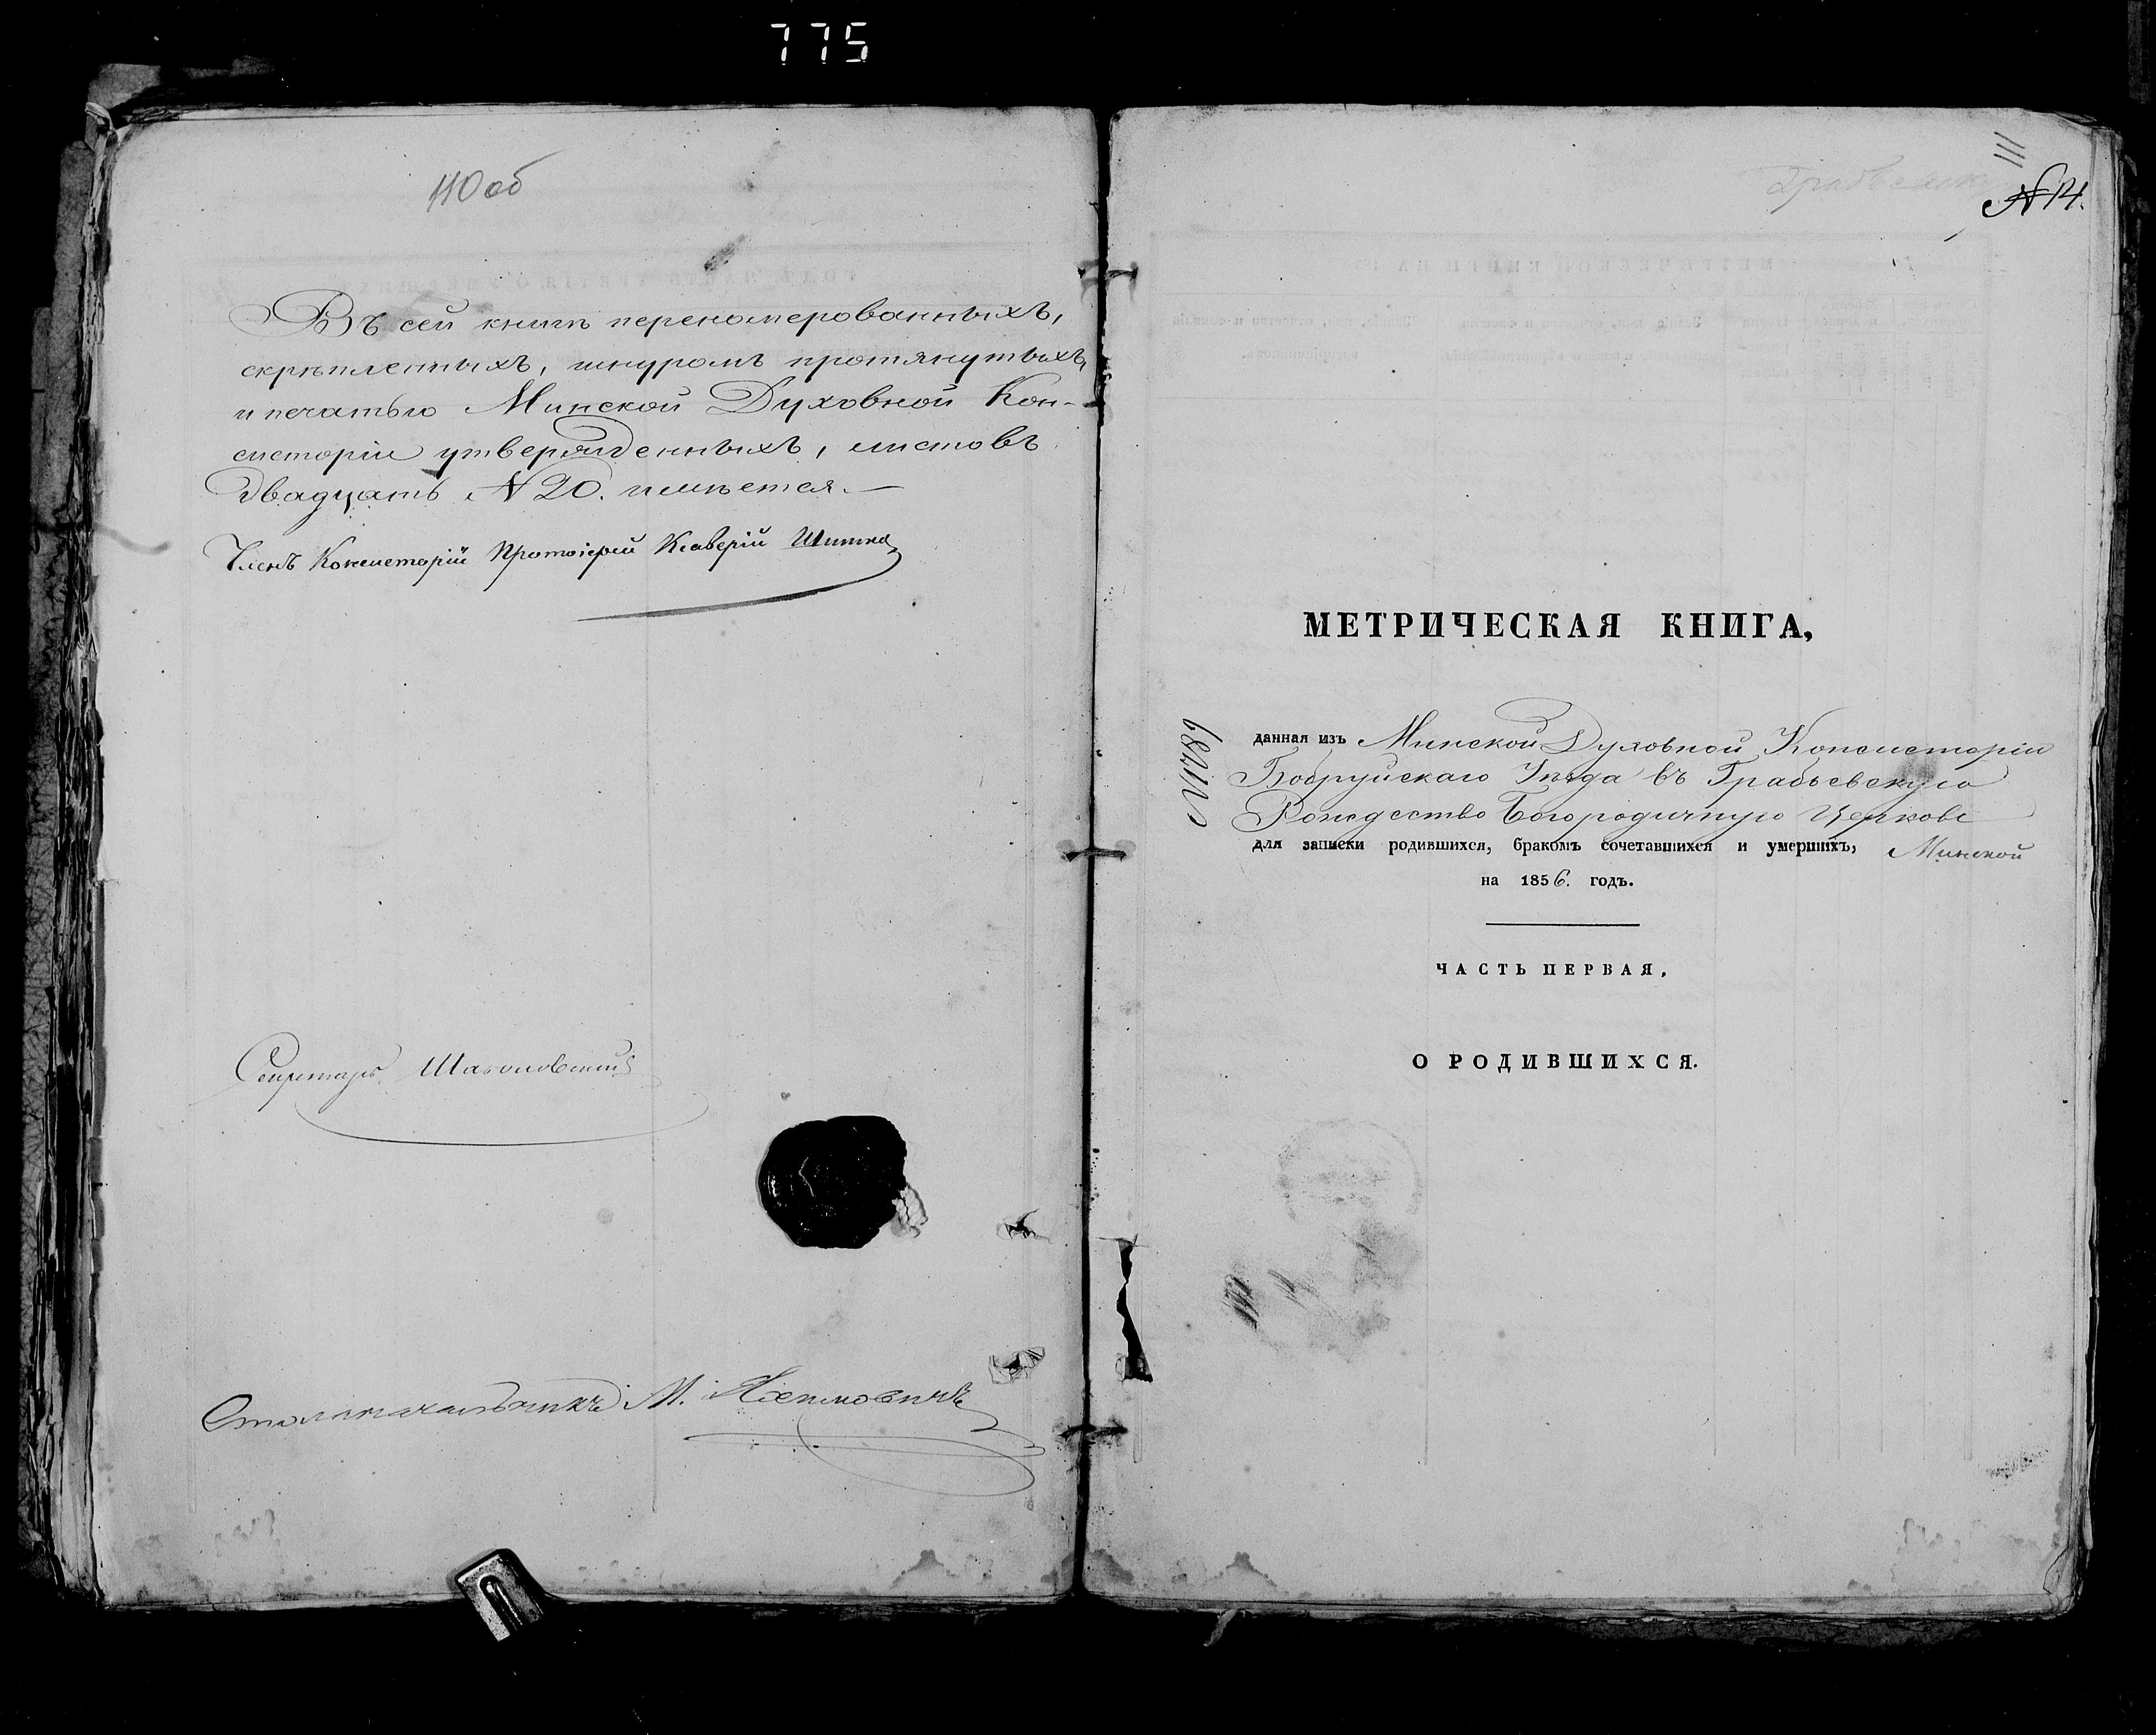 775
110 об
Въ сей книгѣ переномерованныхъ,
скрѣпленныхъ, шнуромъ протянутыхъ,
и печатью Минской Духовной Кон-
систоріи утвержденныхъ, листовъ
двадцать № 20. имѣется.—
Членъ Консисторіи Протоіерей Ксаверій
Секретарь
Столоначальникъ М.
111
№ 14.
МЕТРИЧЕСКАЯ КНИГА,
№ 1789
данная изъ Минской Духовной Консисторіи
Бобруйскаго Уѣзда въ Грабьевскую
Рождество Богородичную Церковь
для записки родившихся, бракомъ сочетавшихся и умершихъ, Минской
на 1856. годъ.
ЧАСТЬ ПЕРВАЯ,
О РОДИВШИХСЯ.